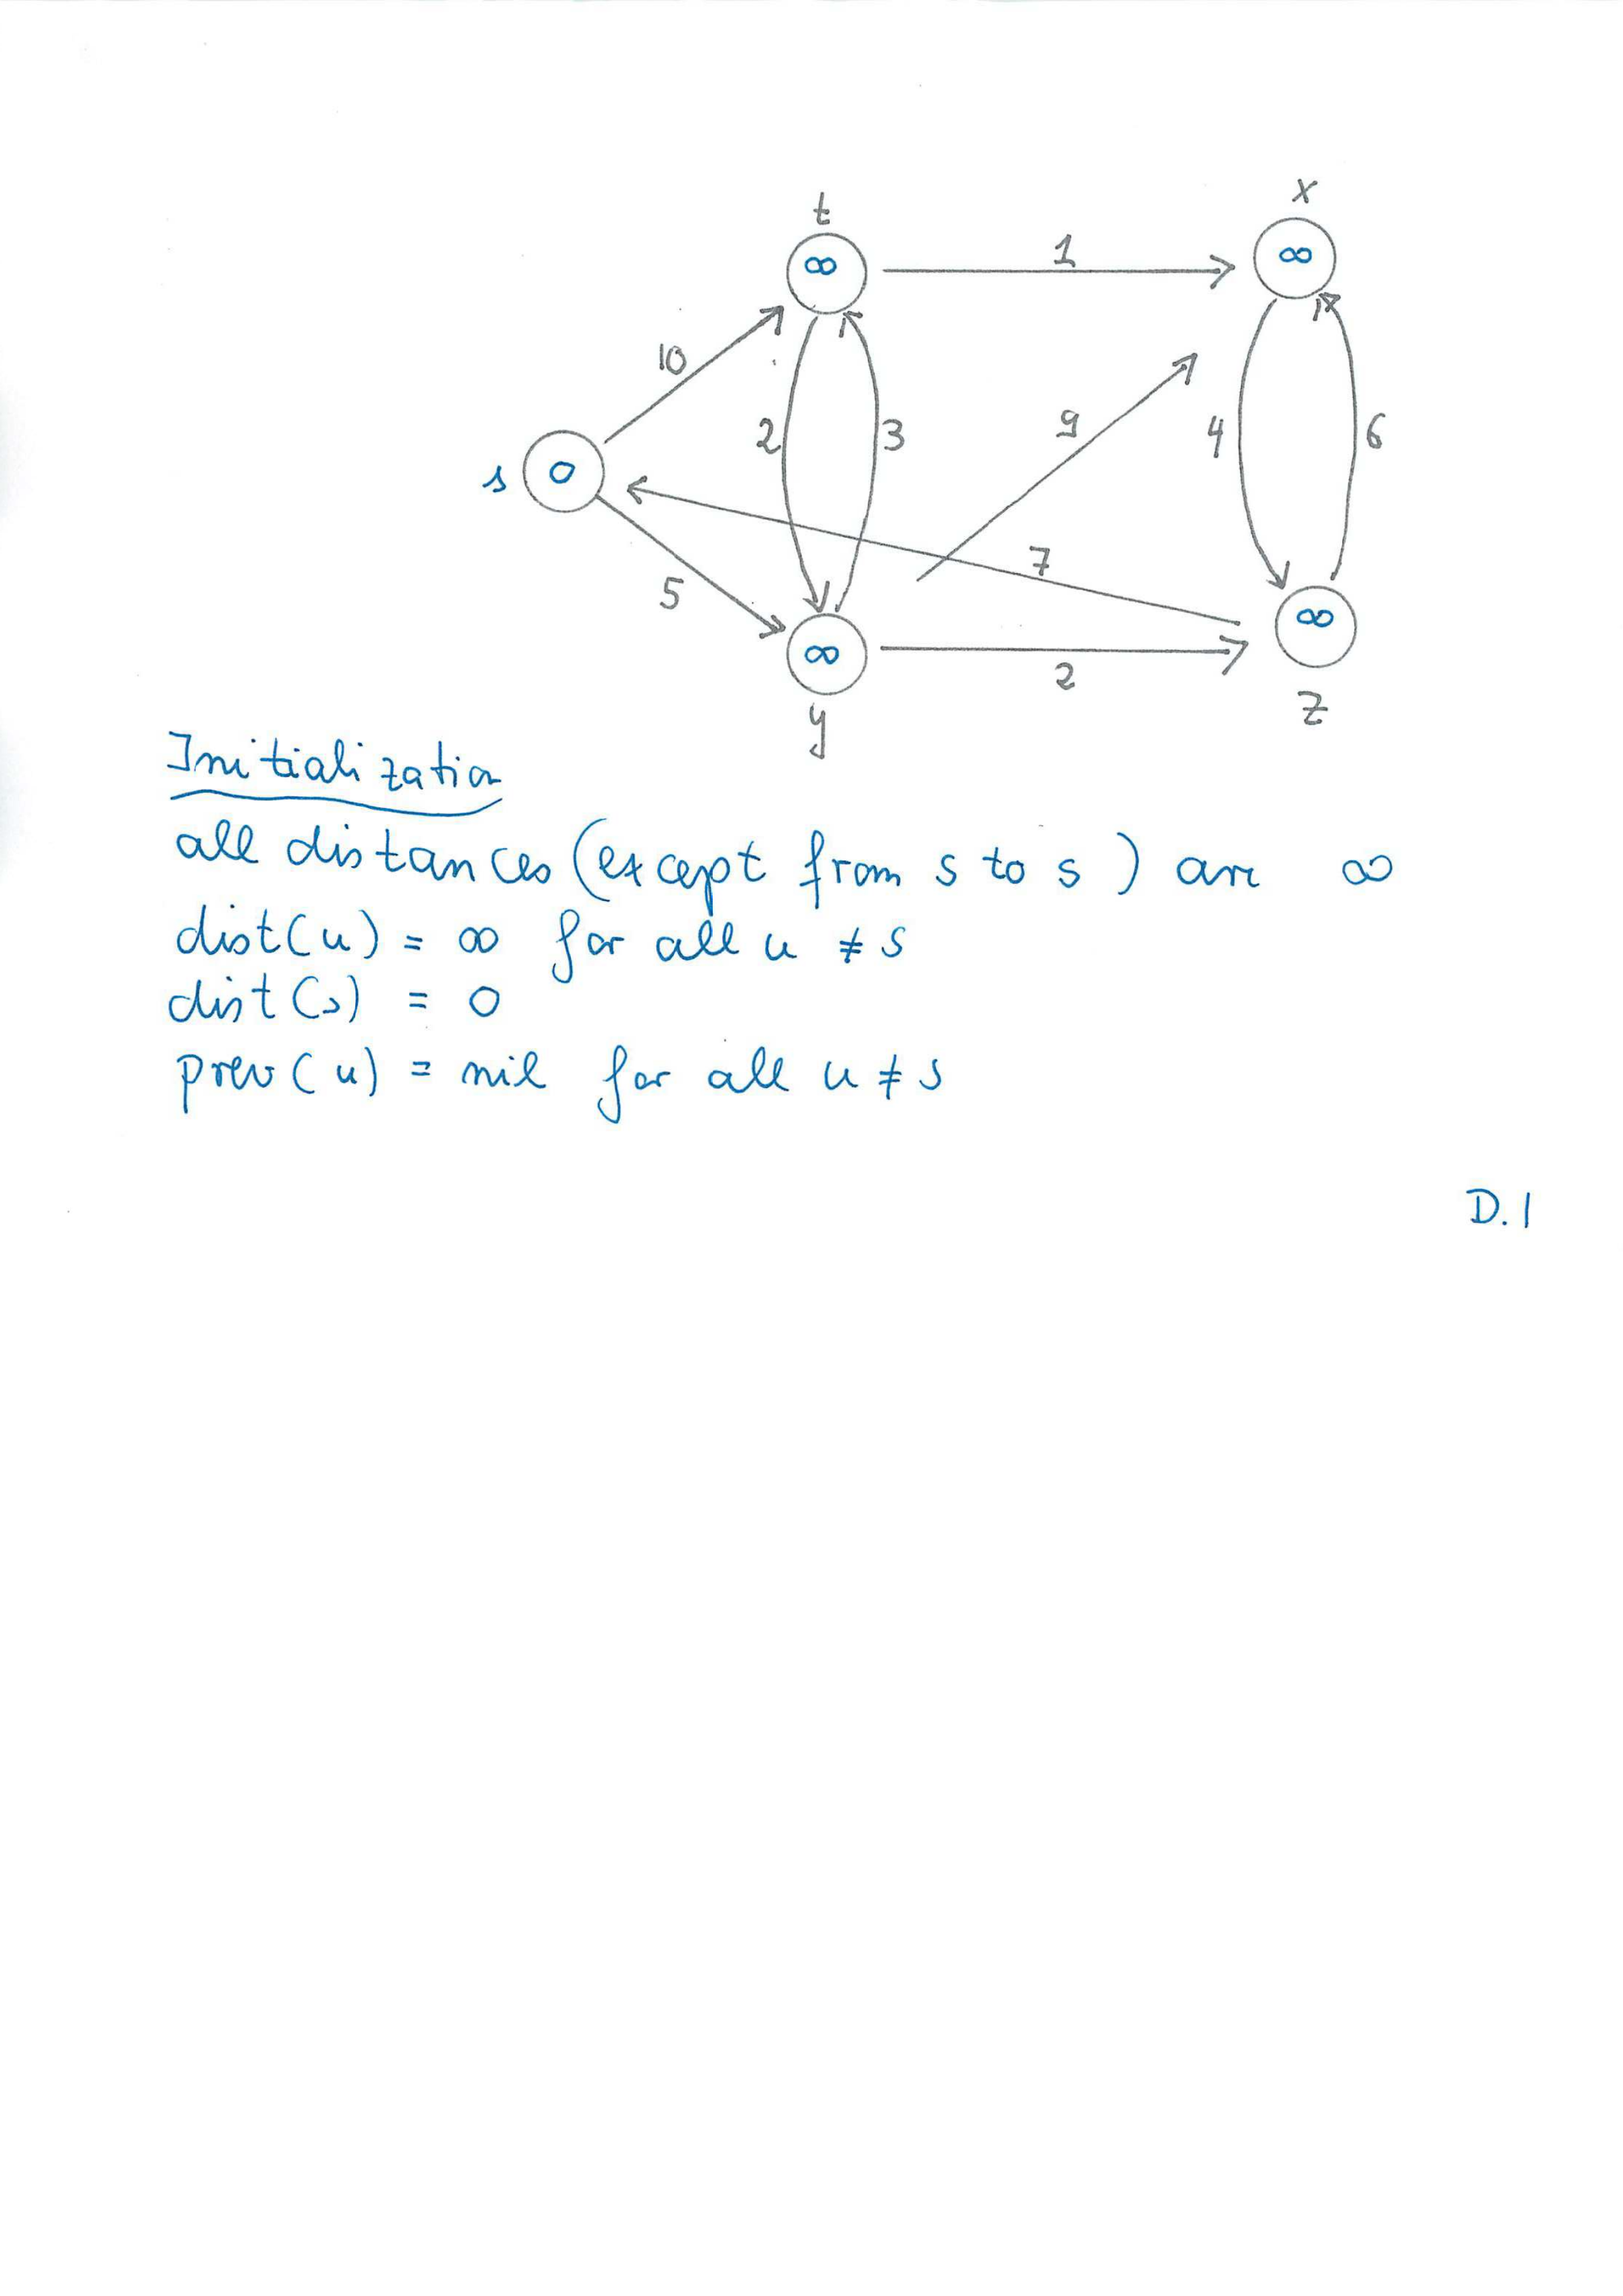 t
x
∞
∞
1
10
2
3
9
4
6
s
0
7
5
∞
∞
2
y
z
Initialization
all distances (except from s to s) are ∞
dist(u) = ∞ for all u ≠ s
dist(s) = 0
prev(u) = nil for all u ≠ s
D.1